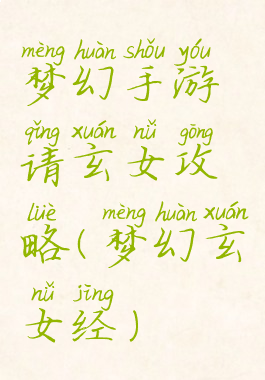 mèng huàn shǒu yóu
梦幻手游
qǐng xuán nǚ gōng
请玄女攻
lüè mèng huàn xuán
略(梦幻玄
nǚ jīng
女经)